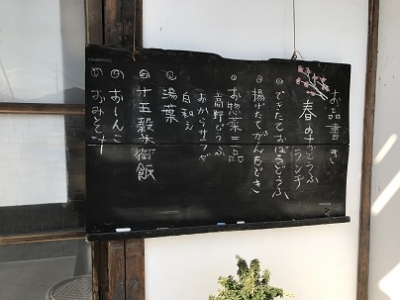 お品書き
春のおとうふランチ
できたておぼろどうふ
揚げたてがんもどき
お惣菜三品
高野どうふ
おからサラダ
白和え
湯葉
十五穀米御飯
おしんこ
おみそ汁